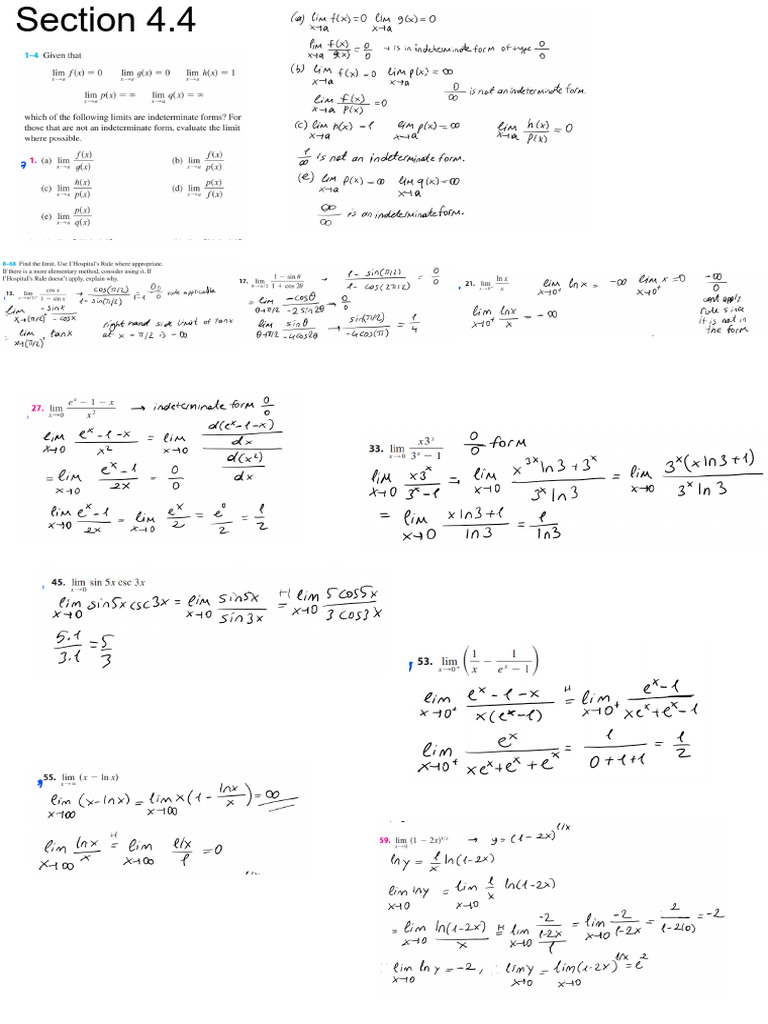 Section 4.4
1–4 Given that
lim x→a f(x) = 0 lim x→a g(x) = 0 lim x→a h(x) = 1
lim x→a p(x) = ∞ lim x→a q(x) = ∞
which of the following limits are indeterminate forms? For
those that are not an indeterminate form, evaluate the limit
where possible.
1. (a) lim x→a f(x)/g(x) (b) lim x→a f(x)/p(x)
(c) lim x→a h(x)/p(x) (d) lim x→a p(x)/f(x)
(e) lim x→a p(x)/q(x)
(a) lim x→a f(x)=0 lim x→a g(x)=0
lim x→a f(x)/g(x) = 0/0 → is in indeterminate form of type 0/0
(b) lim x→a f(x)=0 lim x→a p(x)=∞
lim x→a f(x)/p(x) = 0 0/∞ is not an indeterminate form.
(c) lim x→a h(x)=1 lim x→a p(x)=∞ lim x→a h(x)/p(x) = 0
1/∞ is not an indeterminate form.
(e) lim x→a p(x)=∞ lim x→a q(x)=∞
∞/∞ is an indeterminate form.
8–68 Find the limit. Use l'Hospital's Rule where appropriate.
If there is a more elementary method, consider using it. If
l'Hospital's Rule doesn't apply, explain why.
13. lim x→(π/2)+ cos x/(1 − sin x) → cos(π/2)/(1−sin(π/2)) = 0/(1−1) 0/0 rule applicable
lim x→(π/2)+ −sinx/−cosx
= lim x→(π/2)+ tanx
right hand side limit of tanx
at x → π/2 is −∞
17. lim θ→π/2 (1 − sin θ)/(1 + cos 2θ) → (1 − sin(π/2))/(1− cos(2π/2)) = 0/0
= lim θ→π/2 −cosθ/−2sin2θ → 0/0
lim θ→π/2 sinθ/−4cos2θ → sin(π/2)/−4cos(π) = 1/4
21. lim x→0+ ln x/x lim x→0+ ln x = −∞ lim x→0+ x = 0 −∞/0
lim x→0+ lnx/x = −∞
cant apply
rule since
it is not in
the form
27. lim x→0 (e^x − 1 − x)/x² → indeterminate form 0/0
lim x→0 (e^x−1−x)/x² = lim x→0 (d(e^x−1−x)/dx)/(d(x²)/dx)
= lim x→0 (e^x−1)/2x = 0/0
lim x→0 (e^x−1)/2x = lim x→0 e^x/2 = e^0/2 = 1/2
33. lim x→0 x3^x/(3^x − 1) 0/0 form
lim x→0 x3^x/(3^x−1) = lim x→0 (x^3x ln3 + 3^x)/(3^x ln3) = lim x→0 3^x(x ln3 + 1)/(3^x ln3)
= lim x→0 (x ln3+1)/ln3 = 1/ln3
45. lim x→0 sin 5x csc 3x
lim x→0 sin5x csc3x = lim x→0 sin5x/sin3x =H lim x→0 5cos5x/3cos3x
5.1/3.1 = 5/3
53. lim x→0+ (1/x − 1/(e^x − 1))
lim x→0+ (e^x−1−x)/(x(e^x−1)) =H lim x→0+ (e^x−1)/(xe^x+e^x−1)
lim x→0+ e^x/(xe^x+e^x+e^x) = 1/(0+1+1) = 1/2
55. lim x→∞ (x − ln x)
lim x→∞ (x−lnx) = lim x→∞ x(1− lnx/x) = ∞
lim x→∞ lnx/x =H lim x→∞ (1/x)/1 = 0
59. lim x→0 (1 − 2x)^1/x → y = (1−2x)^1/x
lny = 1/x ln(1−2x)
lim x→0 lny = lim x→0 1/x ln(1−2x)
= lim x→0 ln(1−2x)/x =H lim x→0 (−2/(1−2x))/1 = lim x→0 −2/(1−2x) = 2/(1−2(0)) = −2
∴ lim x→0 ln y = −2, ∴ lim x→0 y = lim x→0 (1−2x)^1/x = e^2